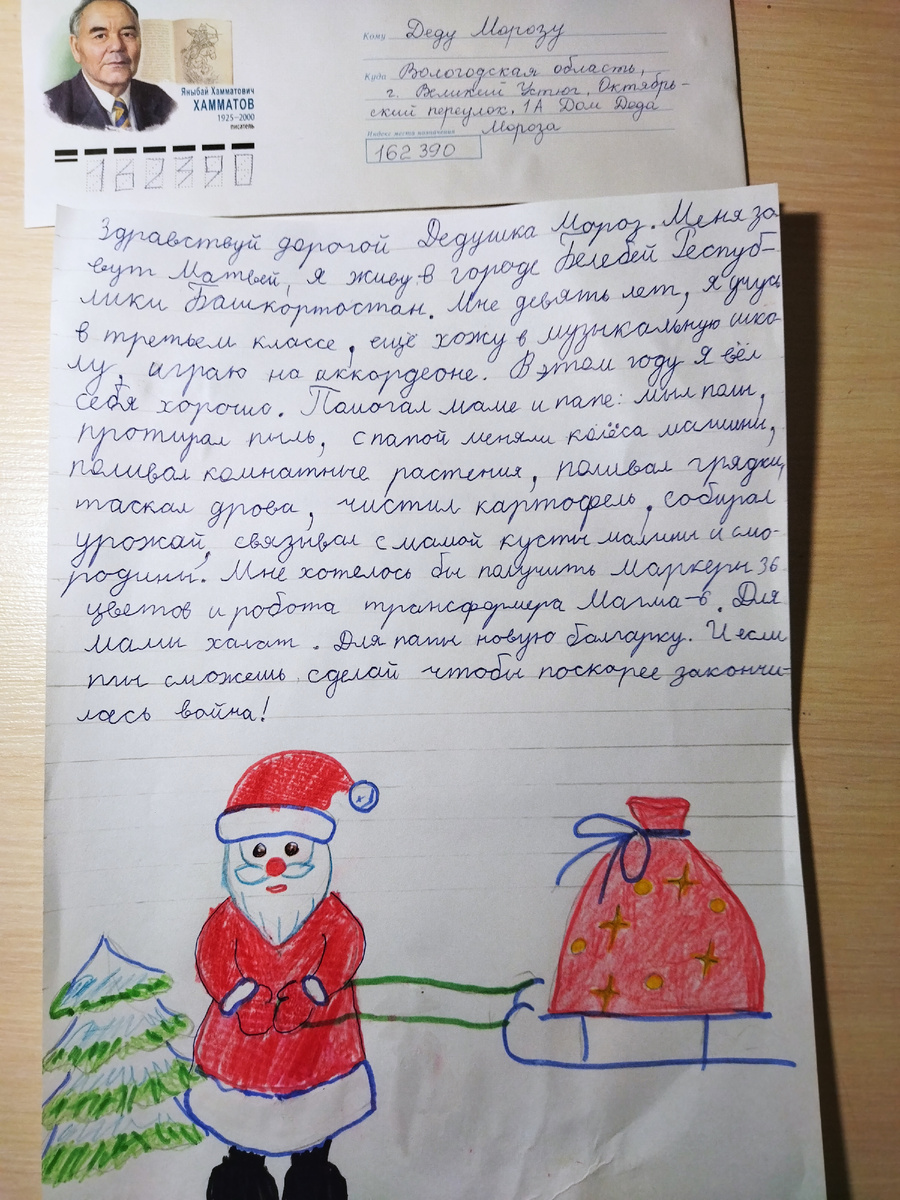 Яныбай Хамматович
ХАММАТОВ
1925–2000
писатель
162390
Кому Деду Морозу
Куда Вологодская область,
г. Великий Устюг, Октябрь-
ский переулок. 1А Дом Деда
Мороза
Индекс места назначения
162390
Здравствуй дорогой Дедушка Мороз. Меня зо
вут Матвей, я живу в городе Белебей Респуб-
лики Башкортостан. Мне девять лет, я учусь
в третьем классе, ещё хожу в музыкальную шко-
лу, играю на аккордеоне. В этом году я вёл
себя хорошо. Помогал маме и папе: мыл полы,
протирал пыль, с папой меняли колёса машины,
поливал комнатные растения, поливал грядки,
таскал дрова, чистил картофель, собирал
урожай, связывал с мамой кусты малины и смо-
родины. Мне хотелось бы получить маркеры 36
цветов и робота трансформера Магма-6. Для
мамы халат. Для папы новую болгарку. И если
ты сможешь сделай чтобы поскорее закончи-
лась война!